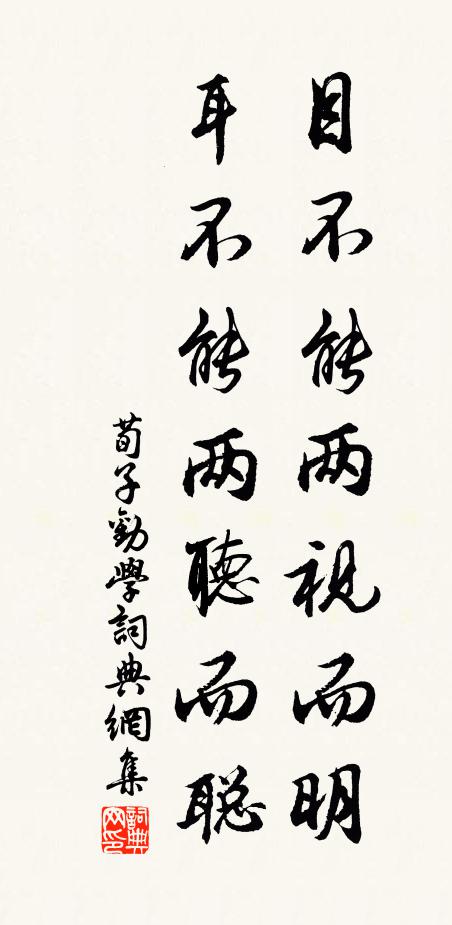 目不能两视而明
耳不能两聽而聪
荀子勸學詞典網集
詞典网印